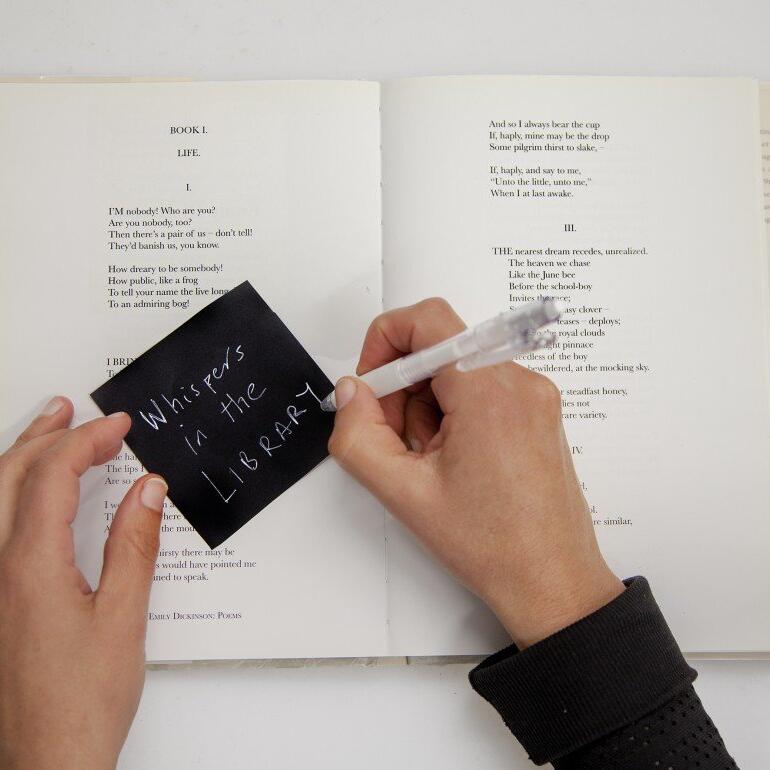 BOOK I.
LIFE.
I.
I'M nobody! Who are you?
Are you nobody, too?
Then there's a pair of us – don't tell!
They'd banish us, you know.
How dreary to be somebody!
How public, like a frog
To tell your name the live long
To an admiring bog!
The lips I
Are so
the mou
thirsty there may be
would have pointed me
to speak.
EMILY DICKINSON: POEMS
Whispers
in the
LIBRARY
And so I always bear the cup
If, haply, mine may be the drop
Some pilgrim thirst to slake, –
If, haply, and say to me,
"Unto the little, unto me,"
When I at last awake.
III.
THE nearest dream recedes, unrealized.
The heaven we chase
Like the June bee
Before the school-boy
Invites the race;
easy clover –
teases – deploys;
the royal clouds
light pinnace
Heedless of the boy
bewildered, at the mocking sky.
steadfast honey,
lies not
rare variety.
IV.
re similar,